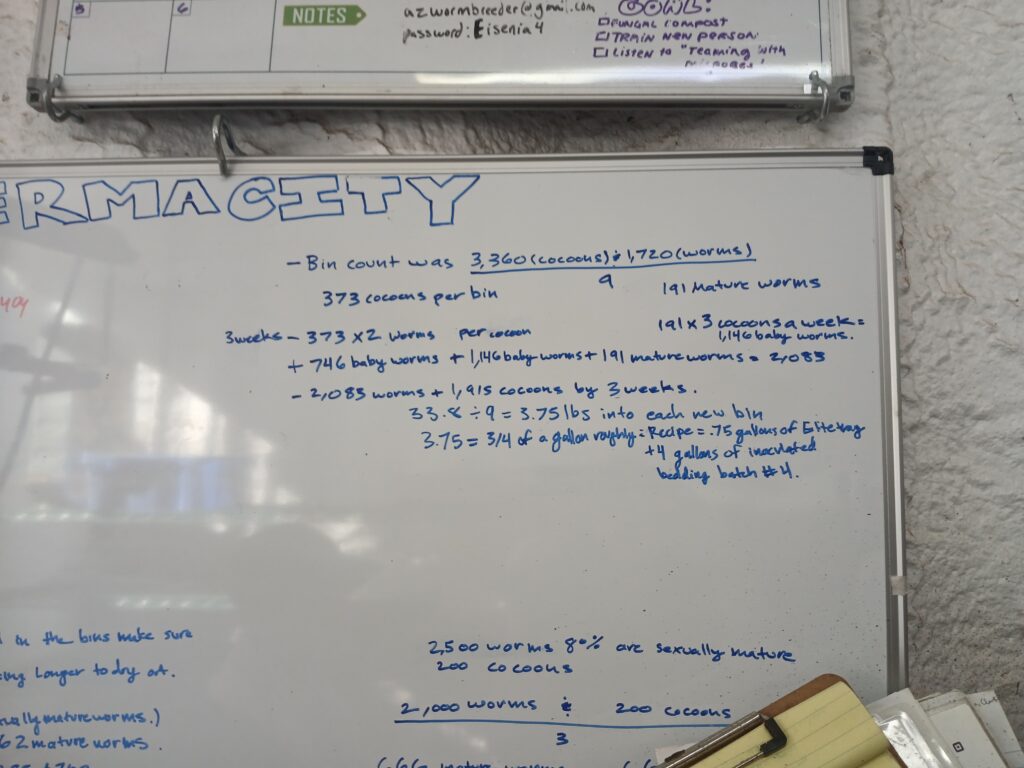 5
6
NOTES
azwormbreeder@gmail.com
password: Eisenia4
GOAL:
FUNGAL COMPOST
TRAIN NEW PERSON
Listen to "Teaming with
microbes"
ERMACITY
- Bin count was 3,360(cocoons) & 1,720(worms)
9
373 cocoons per bin
191 Mature worms
3 weeks - 373 x 2 worms per cocoon
191 x 3 cocoons a week =
1,146 baby worms.
+ 746 baby worms + 1,146 baby worms + 191 mature worms = 2,083
- 2,083 worms + 1,915 cocoons by 3 weeks.
33.8 ÷ 9 = 3.75 lbs into each new bin
3.75 = 3/4 of a gallon roughly : Recipe = .75 gallons of
+4 gallons of inoculated
bedding batch #4.
in the bins make sure
longer to dry out.
2,500 worms 80% are sexually mature
200 cocoons
ually mature worms.)
62 mature worms.
2,000 worms & 200 cocoons
3